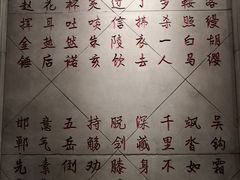 客缦胡缨
鞍照白马
步杀一人
了拂衣去
过信陵饮
炙啖朱亥
杯吐然诺
花耳热后
赵挥金锤
吴钩霜
飒沓如
千里不
深藏身
脱剑膝
持觞劝
五岳倒
意气素
邯郸先